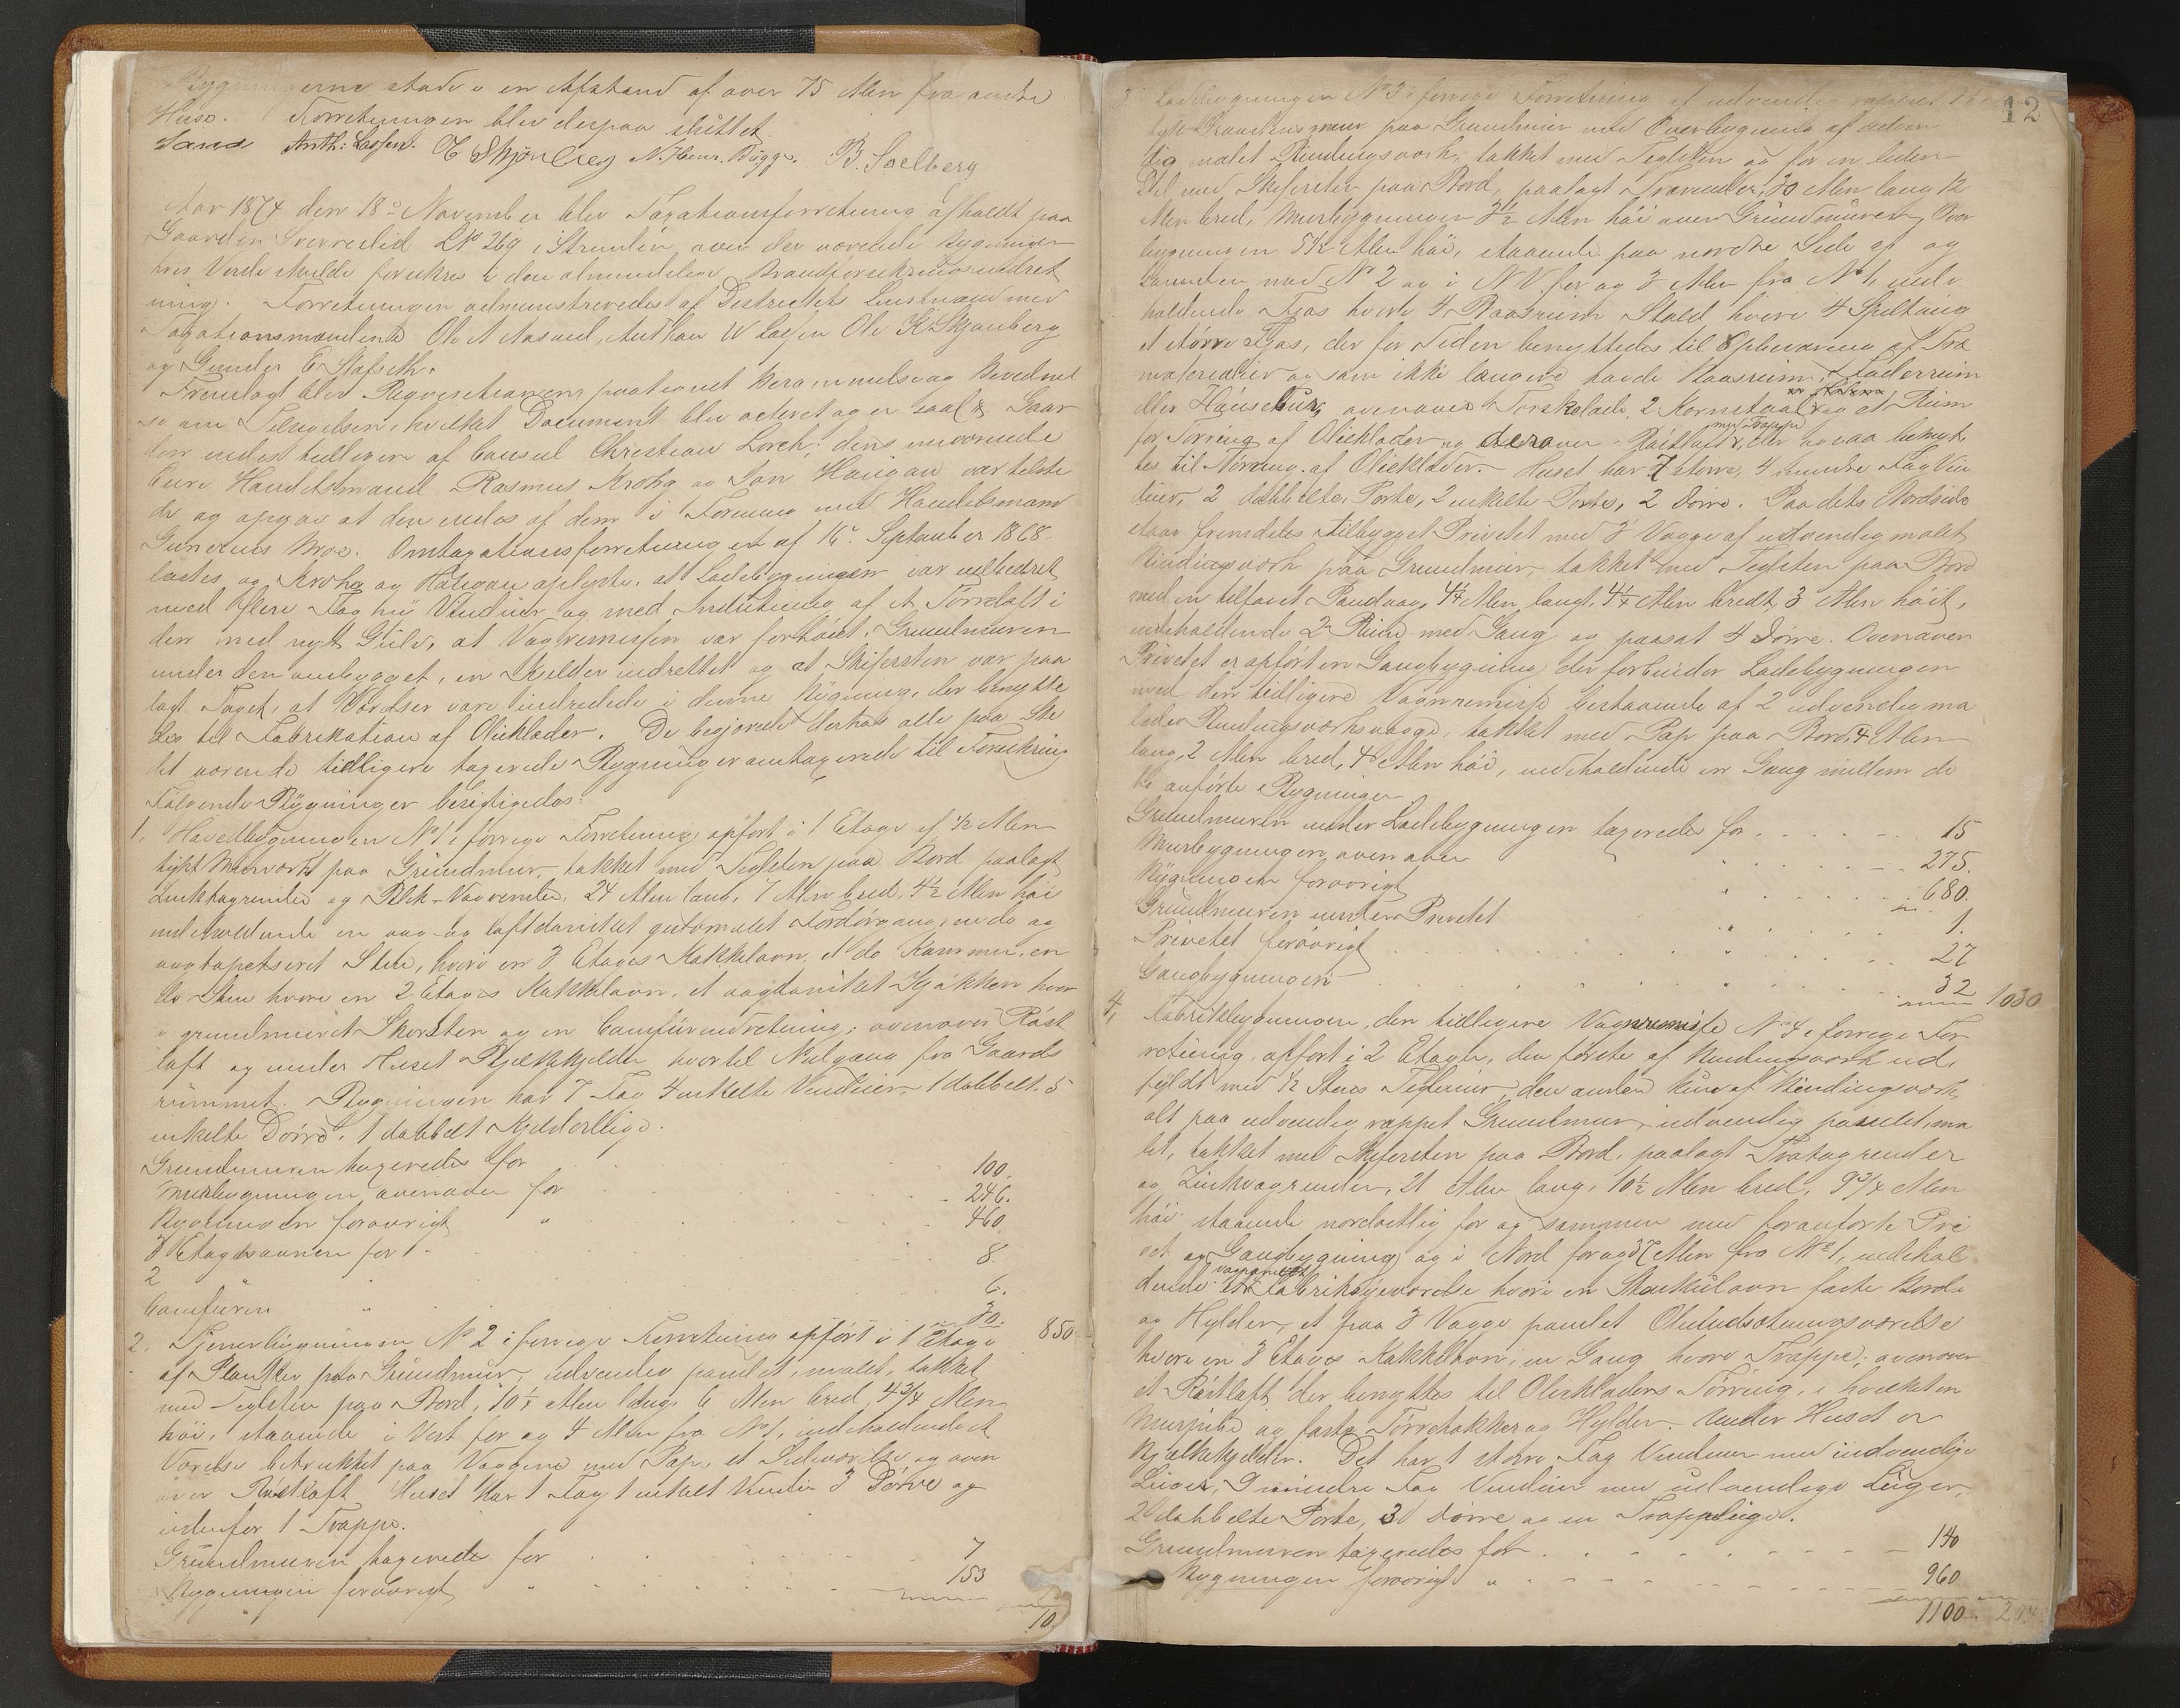 Bygningerne stode i en Afstand af over 75 Alen fra andre
Huse. Forretningen blev derpaa sluttet.
Sand Anth: Lassen. O E Skjönberg N. Henr. Bügge. B. Soelberg
Aar 1874 den 18de November blev Taxationsforretning afholdt paa
Gaarden Sverreslid LNo 269 i Strinden, over der værende Bygninger
hvis Værdi skulde forsikres i den almindelige Brandforsikringsindret
ning. Forretningen administreredes af Distrikts Lensmand med
Taxationsmændene Ole A Aasund, Anthon W Lassen Ole E Skjønberg
og Gunder E Stafseth.
Fremlagt blev Reqvisitionen paategnet Berammelse og Bevidnel
se om Tilsigelsen, hvilket Document blev acteret og er saal. Gaar
den eiedes tidligere af Consul Christian Lorch; dens nuværende
Eiere Handelsmand Rasmus Krohg og Jon Haugan var tilste
de og opgav at den eiedes af dem i Forening med Handelsmand
Gunerius Moe. Omtaxationsforretningen af 16de September 1868
læstes og Krohg og Haugan oplyste, at Ladebygningen var udbedret
med flere Fag nye Vinduer og med Indretning af et Törreloft i
den med nyt Gulv, at Vognremissen var forhöiet, Grundmuren
under den ombygget, en Kielder indrettet og at Skifersten var paa
lagt Taget, at Værelser vare indredede i denne Bygning, der benytte
des til Fabrikation af Olieklæder. De begjærede derhos alle paa Ste
det værende tidligere taxerede Bygninger omtaxerede til Forsikring
Fölgende Bygninger besigtigedes:
1. Hovedbygningen No 1 i forrige Forretning, opfört i 1 Etage af 1/2 Alen
tykt Murværk paa Grundmur, tækket med Teglsten paa Bord paalagt
Zinktagrender og Blik-Vagrender, 24 Alen lang, 7 Alen bred, 4 1/2 Alen höi
indeholdende en væg- og loftdæmket gulvmalet Fordörgang, en do og
vægtapetseret Stue, hvori en 3 Etages Kakkelovn, et do Kammer, en
do Stue hvori en 2 Etages Kakkelovn, et vægdæmket Kjökken hvor
i grundmuret Skorsten og en Comfürindretning; ovenover Röst
loft og under Huset Bjelkekjelder hvortil Nedgang fra Gaards
rummet. Bygningen har 7 Fag 4 enkelte Vinduer, 1 dobbelt 5
enkelte Dörre, 1 dobbelt Kjelderluge.
Grundmuren taxeredes for 100.
Murbygningen ovenover for 246.
Bygningen forövrigt " 460
3 Etagesovnen for 8.
2 " 6.
Comfuren " 30. 850
2. Tjenerbygningen No 2 i forrige Forretning opfört i 1 Etage
af Planker paa Grundmur, udvendig panelet, malet, tækket
med Teglsten paa Bord, 10 1/2 Alen lang, 6 Alen bred, 4 3/4 Alen
höi, staaende i Vest for og 4 Alen fra No 1, indeholdende et
Værelse betrukket paa Væggene med Pap, et Sideværelse og oven
over Röstloft Huset har 1 Fag 1 enkelt Vindu 3 Dörre og
udenfor 1 Trappe.
Grundmuren taxeredes for 7
Bygningen forövrigt " 153
12
3 Ladebygningen No 3 i forrige Forretning af udvendig rappet 1/2
tyk Graastensmuur paa Grundmur med Overbygning af udven
dig malet Bindingsværk, tækket med Teglsten og for en liden
Del med Skifersten paa Bord, paalagt Trærender, 30 Alen lang 12
Alen bred, Murbygningen 3 1/2 Alen höi over Grundmuren, Over
bygningen 5 1/2 Alen höi, staaende paa nordre Side af og
sammen med No 2 og i NV for og 3 Alen fra No 1, inde
holdende Fjøs hvori 4 Baasrum Stald hvori 4 Spiltaug
et större Fjøs, der for Tiden benyttedes til Opbevaring af Træ
materialier og som ikke længere havde Baasrum, 1 Foderrum
eller Hönsehuus, ovenover Torskelade, 2 Kornstaal og et Rum
for Törring af Olieklæder og derover Röstloft med Trappe, der ogsaa benyt
tes til Törring af Olieklæder. Huset har 7 större, 4 mindre Fag Vin
duer, 2 dobbelte Porte, 2 enkelte Porte, 2 Dörre. Paa dets Nordside
staar fremdeles tilbygget Privetet med 3 Vægge af udvendig malet
Bindingsværk paa Grundmur, tækket med Teglsten paa Bord
med en tilføiet Bandvæg, 4 1/4 Alen langt, 4 1/4 Alen bredt, 3 Alen höit,
indeholdende 2 Rum med Gang og paasat 4 Dörre. Ovenover
Privetet er opfört en Gangbygning, der forbinder Ladebygningen
med den tidligere Vognremise bestaaende af 2 udvendig ma
lede Bindingsværksvægge, tækket med Pap paa Bord, 4 Alen
lang, 2 Alen bred, 4 Alen höi, indeholdende en Gang mellem de
to anförte Bygninger
Grundmuren under Ladebygningen taxeredes for 15
Murbygningen ovenover 275.
Bygningen forövrigt " 680.
Grundmuren under Privetet " 1.
Privetet forövrigt " 27
Gangbygningen " 32 1030
4, Fabrikbygningen, den tidligere Vognremise No 4 i forrige For
retning, opfört i 2 Etager, den förste af Bindingsværk ud
fyldt med 1/2 Stens Teglmur, den anden kun af Bindingsværk,
alt paa udvendig rappet Grundmur, udvendig panelet, ma
let, tækket med Skifersten paa Bord, paalagt Trætagrender
og Zinkvagrender, 21 Alen lang, 10 1/2 Alen bred, 9 3/4 Alen
höi, staaende nordostlig for og sammen med foranförte Pri
vet og Gangbygning og i Nord for og 37 Alen fra No 1, indehol
dende vægpanelet Fabriksyeværelse hvori en Skaktelovn faste Borde
og Hylder, et paa 3 Vægge panelet Olieindsætningsværelse
hvori en 3 Etages Kakkelovn, en Gang hvori Trappe; ovenover
et Röstloft der benyttes til Olieklæders Törring, i hvilket en
Murpibe og faste Törrestokker og Hylder. Under Huset er
Bjelkekjelder. Det har 1 större Fag Vinduer med indvendige
Luger, 9 mindre Fag Vinduer med udvendige Luger,
2 dobbelte Porte, 3 Dörre og en Trappeluge.
Grundmuren taxeredes for 140
Bygningen forövrigt " 960
1100